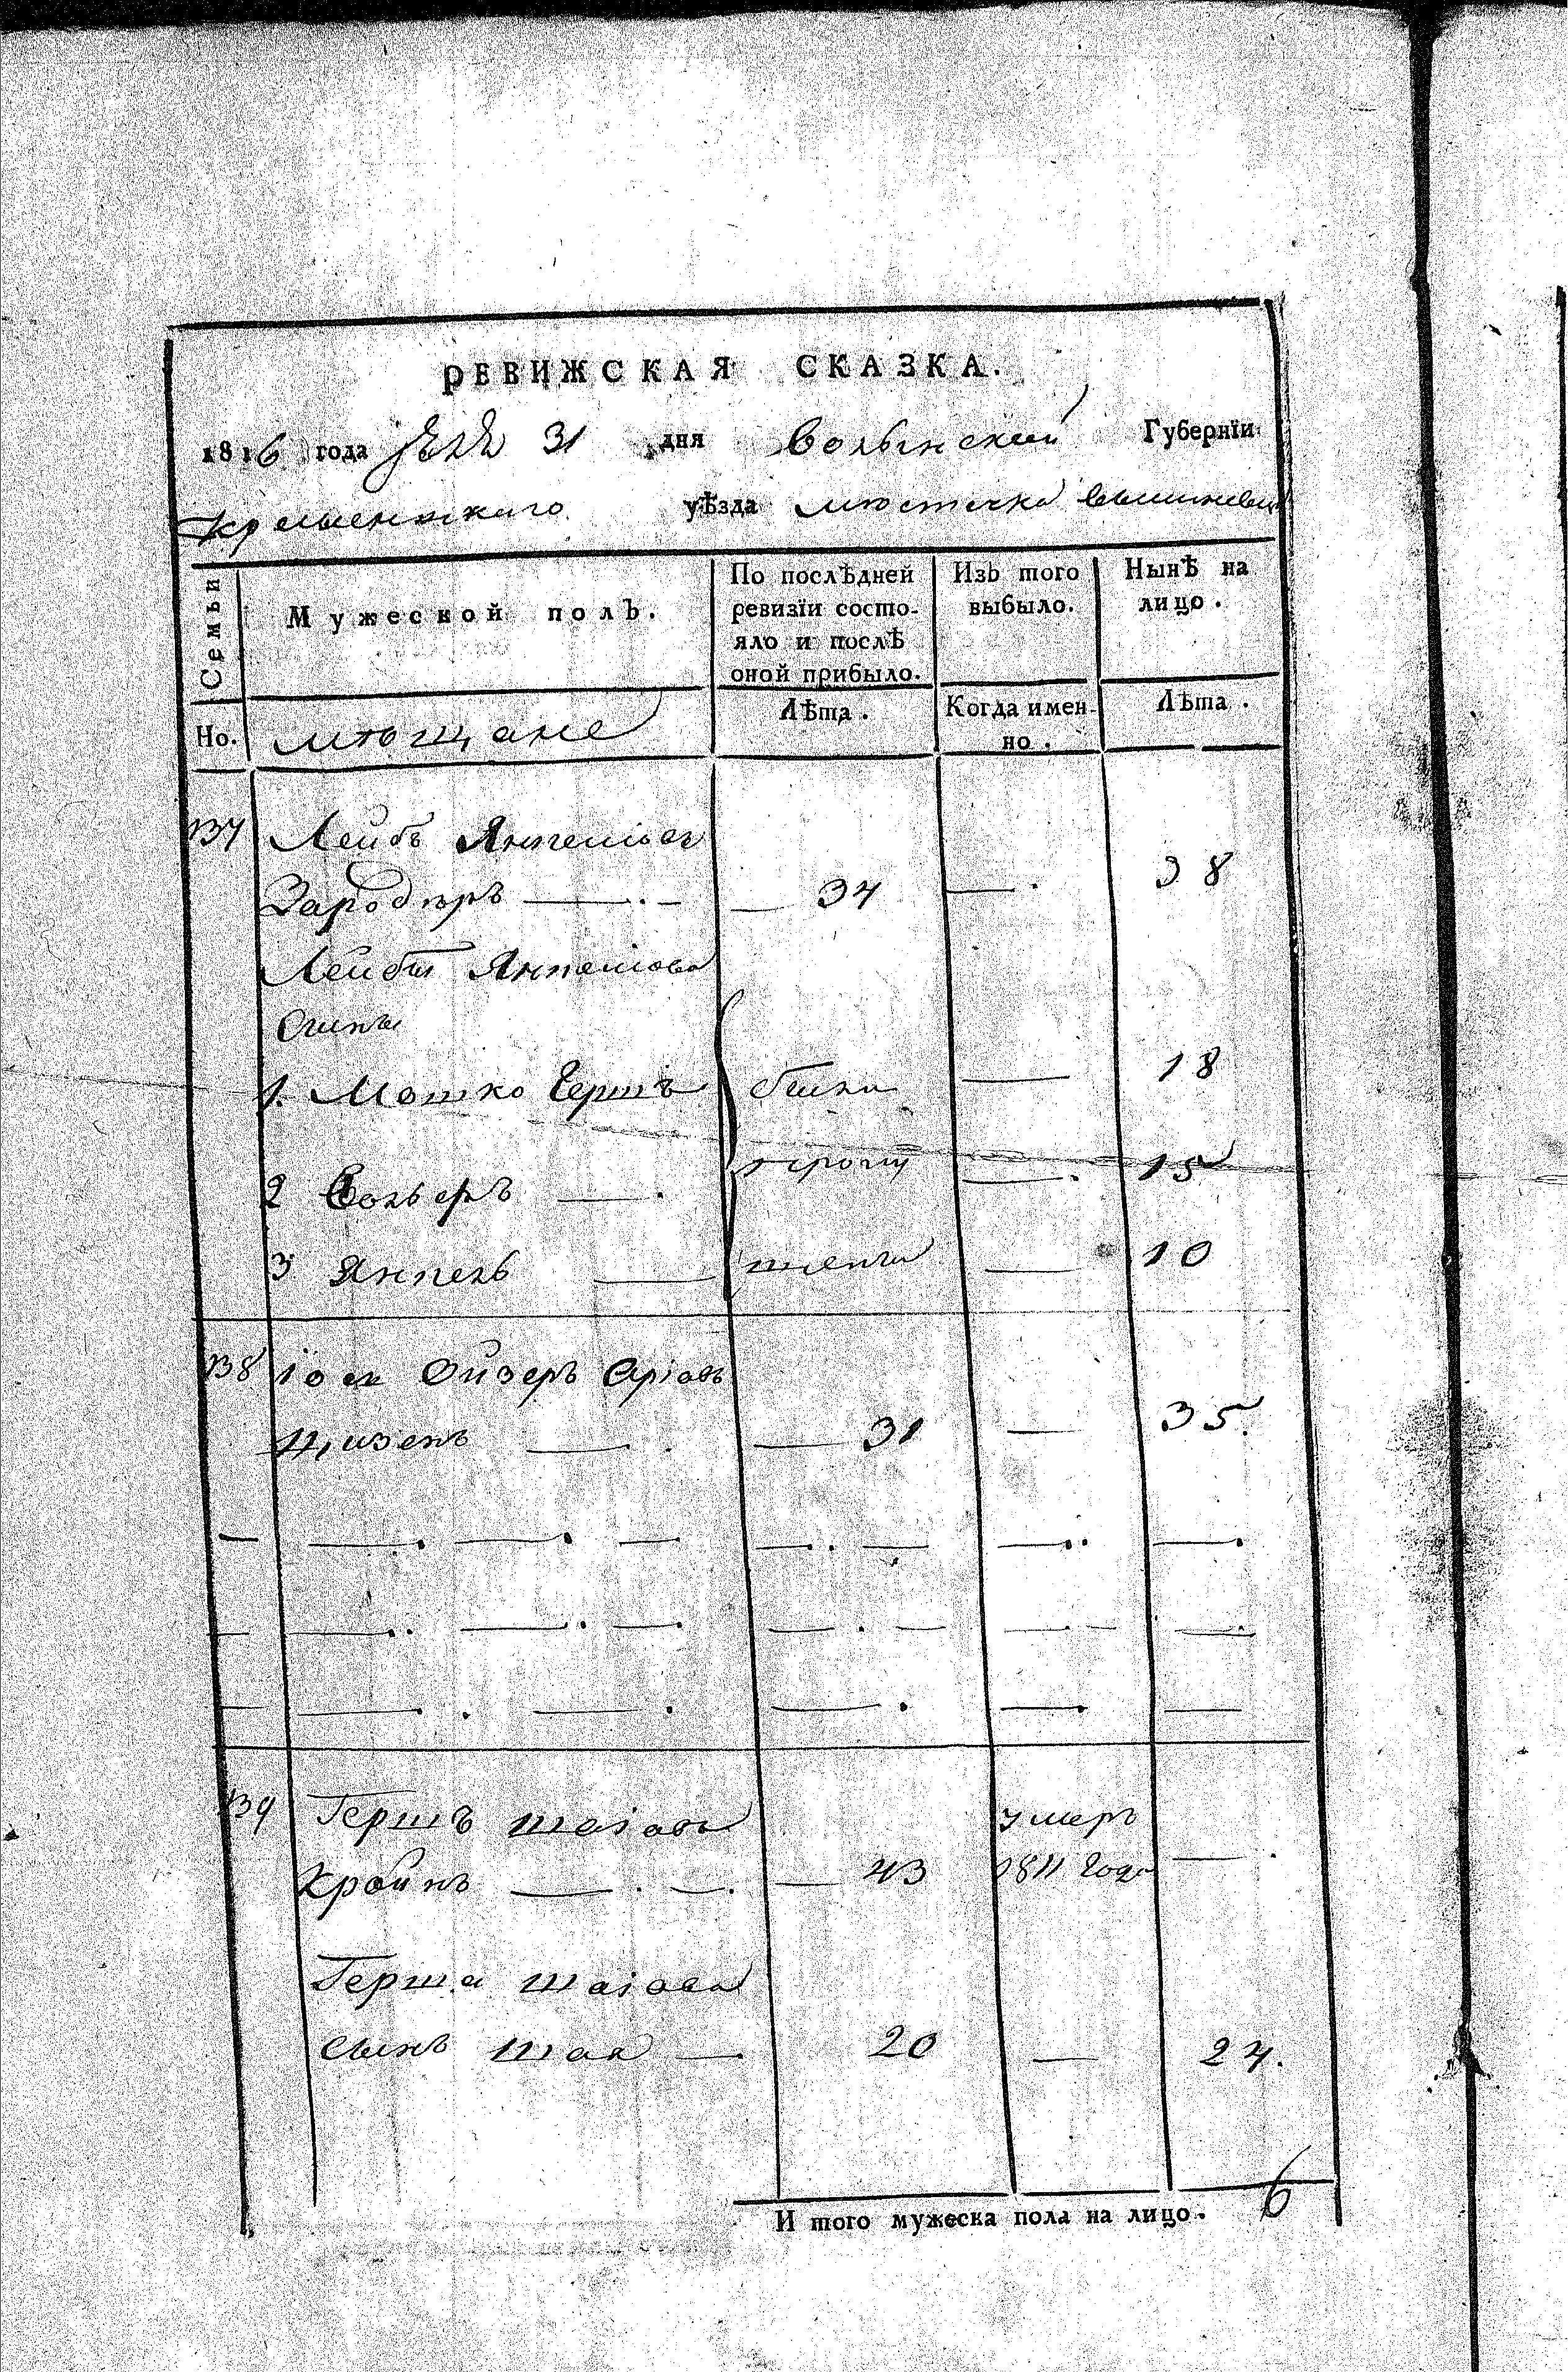 РЕВИЖСКАЯ СКАЗКА.
1816 года 31 дня Волынской Губернїи
Кременецкаго уѣзда мѣстечка вышневца
Семьи
Мужеской полъ.
По послѣдней ревизїи состо-
яло и послѣ оной прибыло.
Изъ того выбыло.
Нынѣ на лицо.
Но. мѣщане
Лѣта.
Когда имен-
но.
Лѣта.
137 Лейбъ Янкелiовъ
34 — 38
Лейбы Янкелiова
Сыны
1. Мошко Гершъ были — 18
2 — пропу — 15
3 Янкель — щены — 10
138 Iось Ойзеръ Арiовъ
Цизенъ — 31 — 35.
139 Гершъ шаiовъ умеръ
Кройнъ — 43 1811 Года —
Герша шаiова
сынъ шая — 20 — 24.
И того мужеска пола на лицо. 6